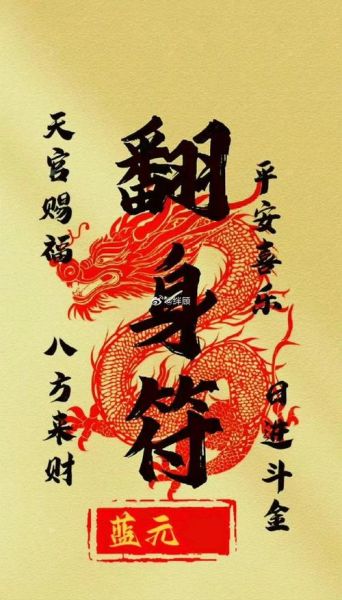 翻身符
天官赐福
八方来财
平安喜乐
日进斗金
@绊顾
蓝元